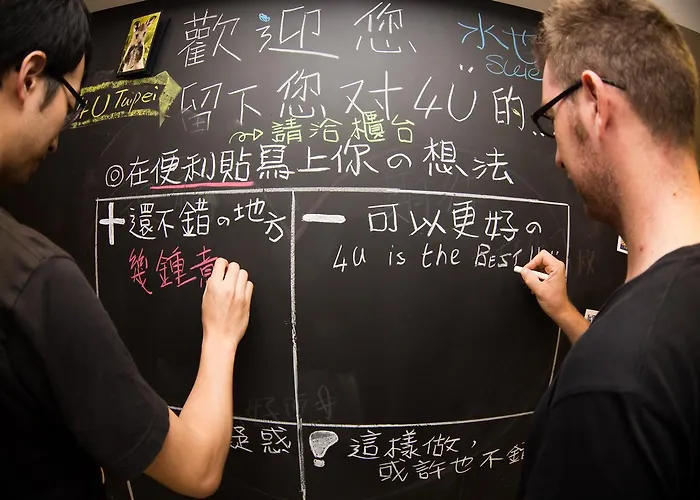 歡迎您
4U Taipei
留下您对4Ü的...
請洽櫃台
◎在便利貼寫上你の想法
+還不錯の地方
幾鍾
− 可以更好の
4U is the BEST
疑惑
這樣做,
或許也不錯